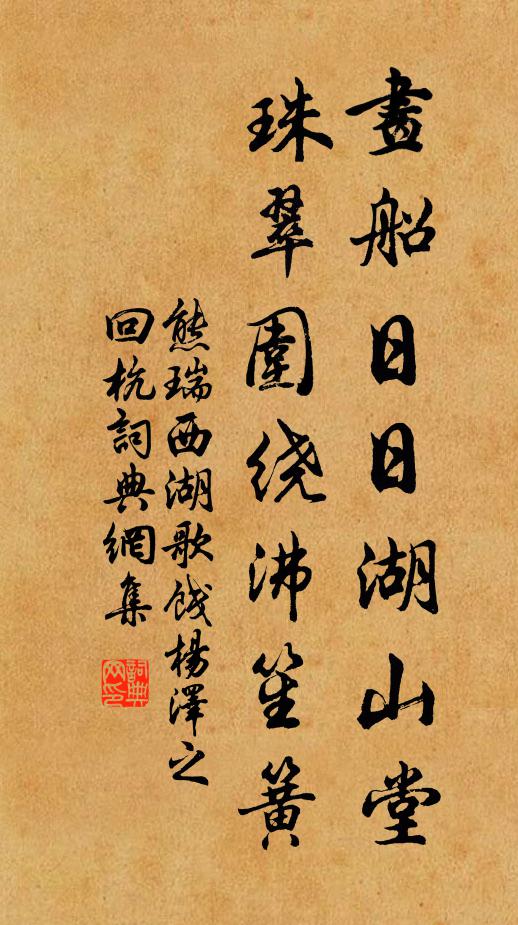 畫船日日湖山堂
珠翠圍绕沸笙簧
熊瑞西湖歌餞楊澤之
回杭詞典網集
詞典網印